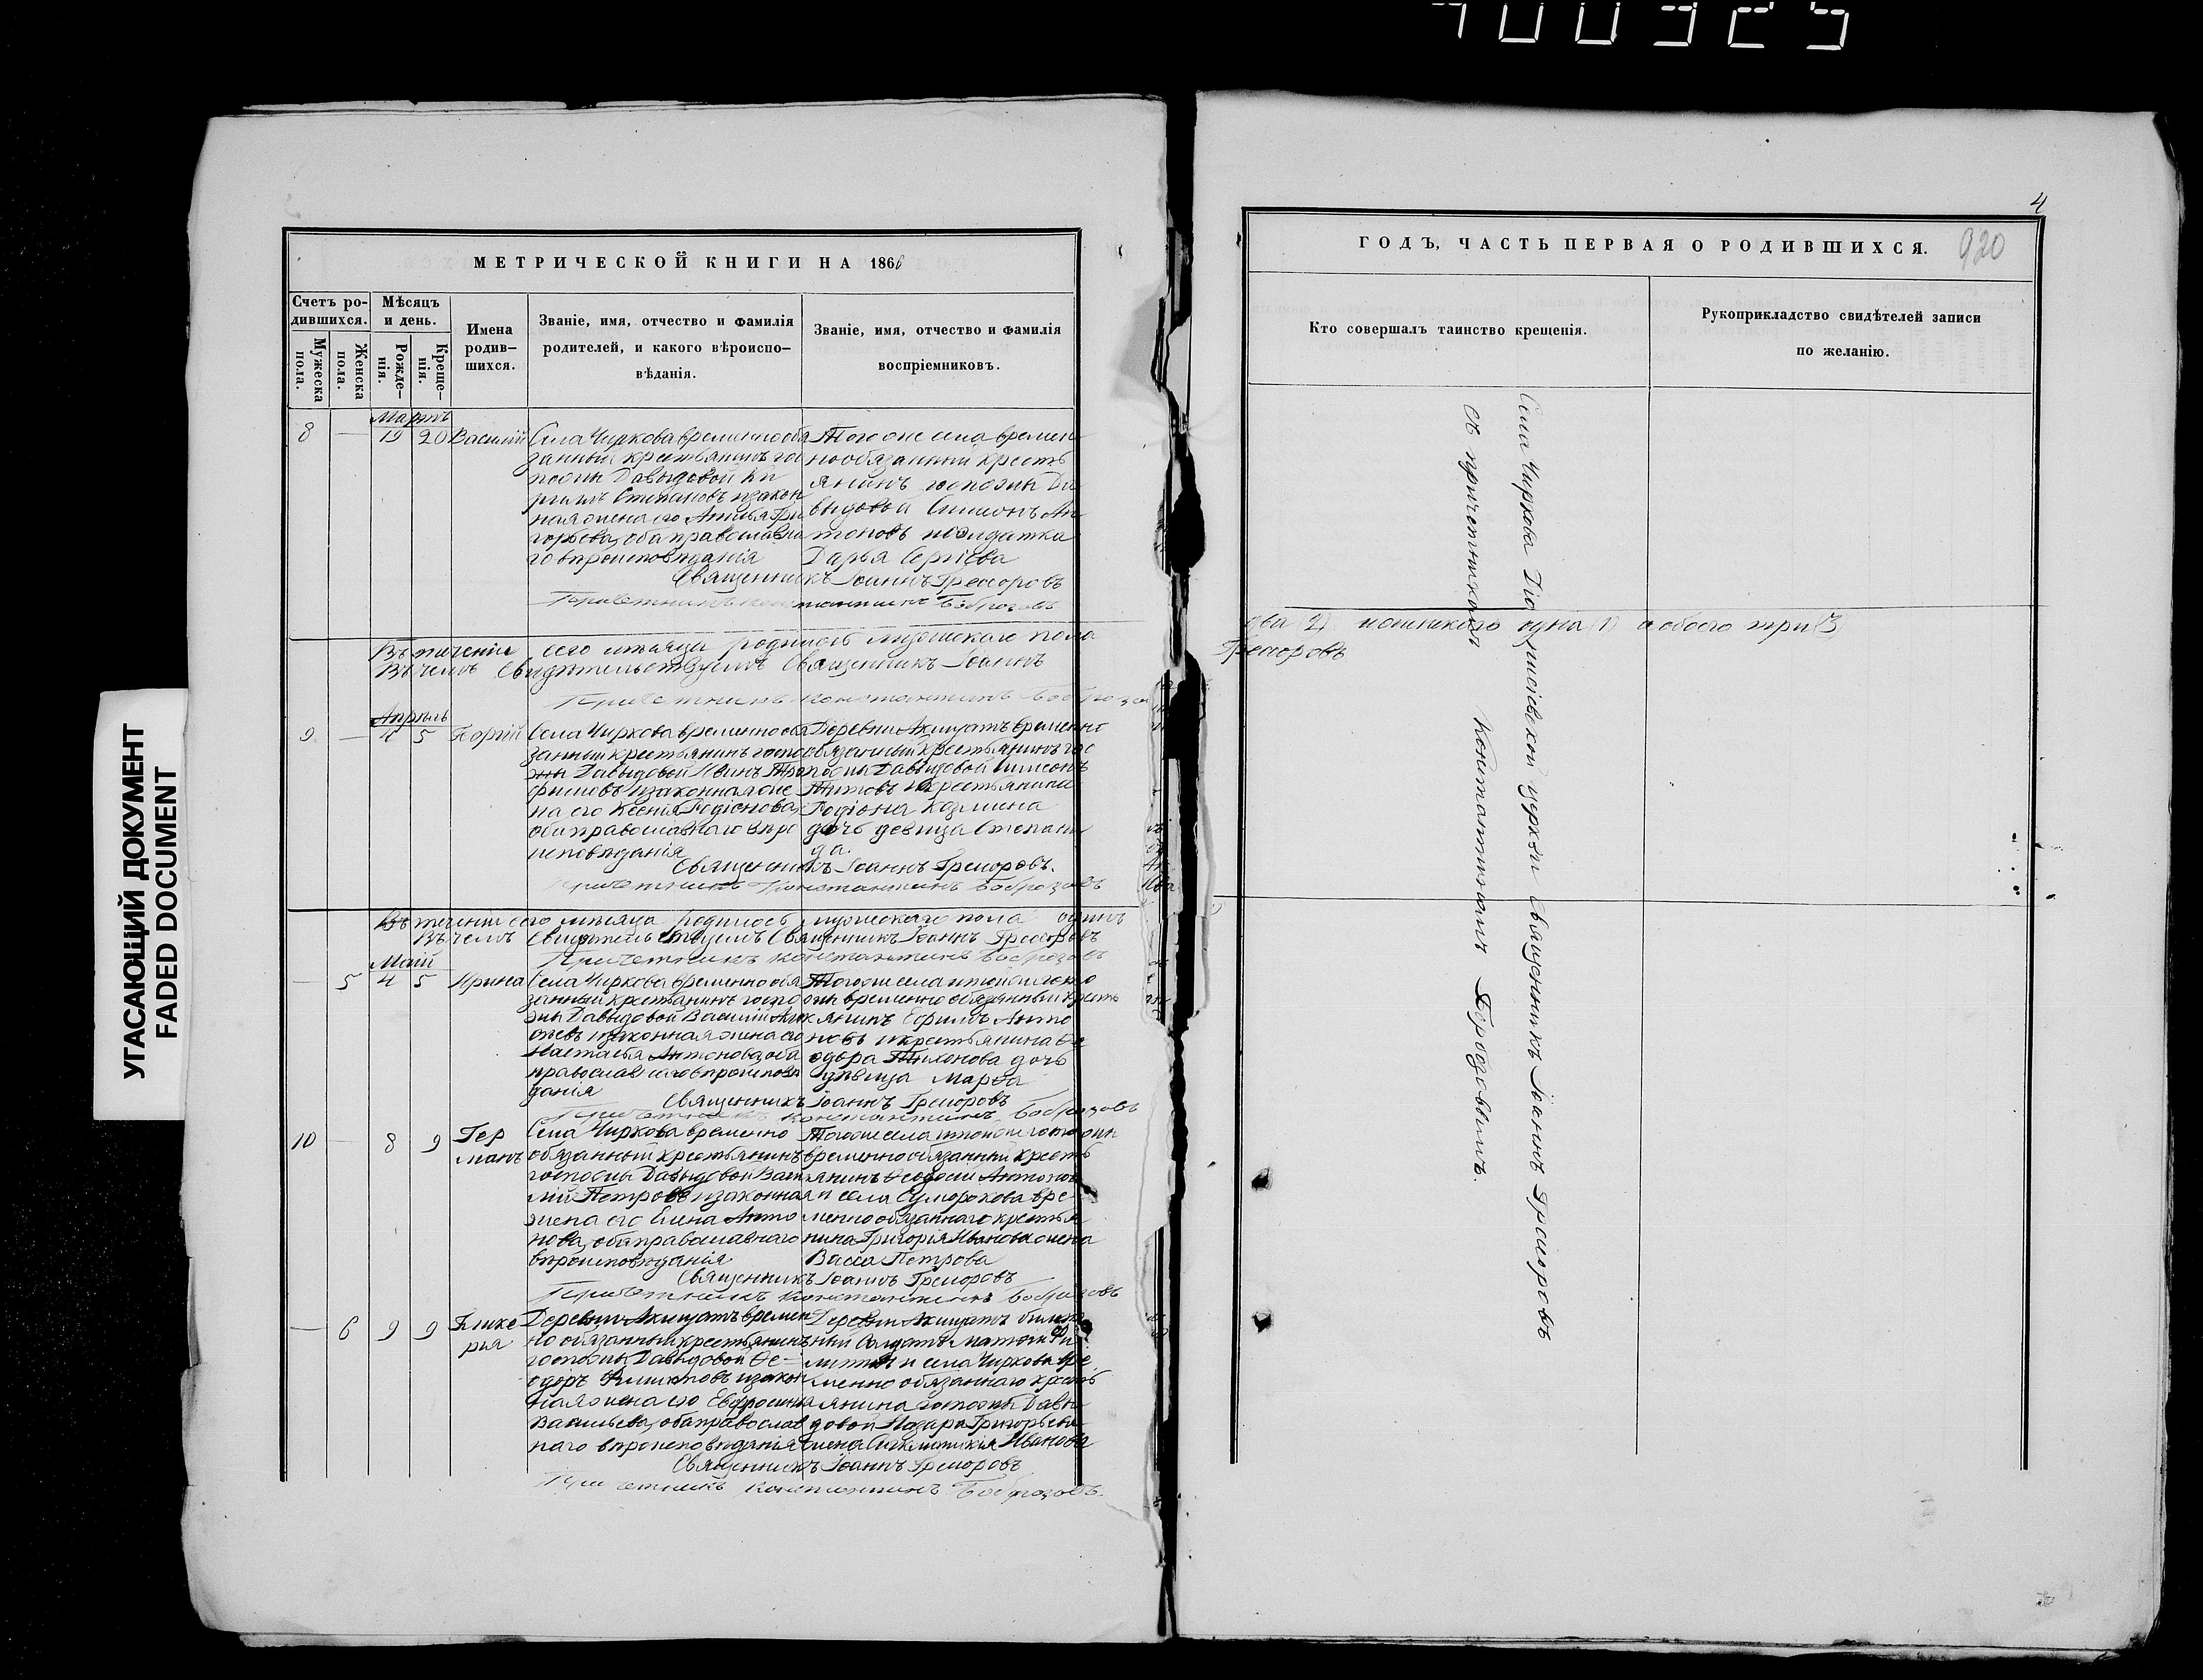 400925
УГАСАЮЩИЙ ДОКУМЕНТ
FADED DOCUMENT
МЕТРИЧЕСКОЙ КНИГИ НА 1866
Счетъ ро-
дившихся.
Мужеска пола.
Женска пола.
Мѣсяцъ
и день.
Рожде-
нія.
Креще-
нія.
Имена
родив-
шихся.
Званіе, имя, отчество и фамилія
родителей, и какого вѣроиспо-
вѣданія.
Званіе, имя, отчество и фамилія
воспріемниковъ.
Мартъ
8 — 19 20 Василій
Села Чиркова временнообя
занный крестьянинъ гос
пожи Давыдовой Ки
риллъ Степановъ и закон
ная жена его Анисья Гри
горьева, оба православна
го вѣроисповѣданія
Того же села времен
нообязанный кресть
янинъ госпожи Да
выдовой Симеонъ Ан
тоновъ и солдатка
Дарья Сергіева
Священникъ Іоаннъ Григоровъ
Причетникъ Константинъ
Въ теченіи сего мѣсяца родилось мужескаго пола
Въ чемъ Свидѣтельствуемъ Священникъ Іоаннъ
Причетникъ Константинъ
Апрѣль
9 — 4 5 Георгій
Села Чиркова временнообя
занный крестьянинъ госпо
жи Давыдовой Иванъ Тро
фимовъ и законная же
на его Ксенія Родіонова,
оба православнаго вѣро
исповѣданія
Деревни временно
обязанный крестьянинъ гос
пожи Давыдовой Симеонъ
Титовъ и крестьянина
Родіона Козмина
дочь девица Степани
да.
Священникъ Іоаннъ Григоровъ.
Причетникъ Константинъ
Въ теченіи сего мѣсяца родилось мужескаго пола одинъ
Въ чемъ Свидѣтельствуемъ Священникъ Іоаннъ Григоровъ
Причетникъ Константинъ
Май
— 5 4 5 Ирина
Села Чиркова временнообя
занный крестьянинъ госпо
жи Давыдовой Василій
и законная жена его
Настасья Антонова, оба
православнаго вѣроисповѣ
данія
Того же села и той же госпо
жи временно обязанный кресть
янинъ Ефимъ Анто
новъ и крестьянина Ѳе
одора Тихонова дочь
дѣвица Марѳа
Священникъ Іоаннъ Григоровъ
Причетникъ Константинъ
10 — 8 9 Гер
манъ
Села Чиркова временно
обязанный крестьянинъ
госпожи Давыдовой Васи
лій Петровъ и законная
жена его Елена Анто
нова, оба православнаго
вѣроисповѣданія
Того же села и той же госпожи
временно обязанный кресть
янинъ Ѳеодосій Антонов
и села Суморокова вре
менно обязаннаго крестья
нина Григорія Иванова жена
Васса Петрова
Священникъ Іоаннъ Григоровъ
Причетникъ Константинъ
— 6 9 9 Глике
рия
Деревни времен
но обязанный крестьянинъ
госпожи Давыдовой Ѳе-
одоръ и закон
ная жена его Евфросинія
Васильева, оба православ
наго вѣроисповѣданія
Деревни
Солдатъ
и села Чиркова вре
менно обязаннаго кресть
янина госпожи Давы
довой Назара Григорьева
жена Иванова
Священникъ Іоаннъ Григоровъ
Причетникъ Константинъ
4
ГОДЪ, ЧАСТЬ ПЕРВАЯ О РОДИВШИХСЯ.
920
Кто совершалъ таинство крещенія.
Рукоприкладство свидѣтелей записи
по желанію.
два (2) женскаго одна (1) а обоего три (3)
Григоровъ
Села Чиркова церкви Священникъ Іоаннъ Григоровъ
Съ причетникомъ Константиномъ